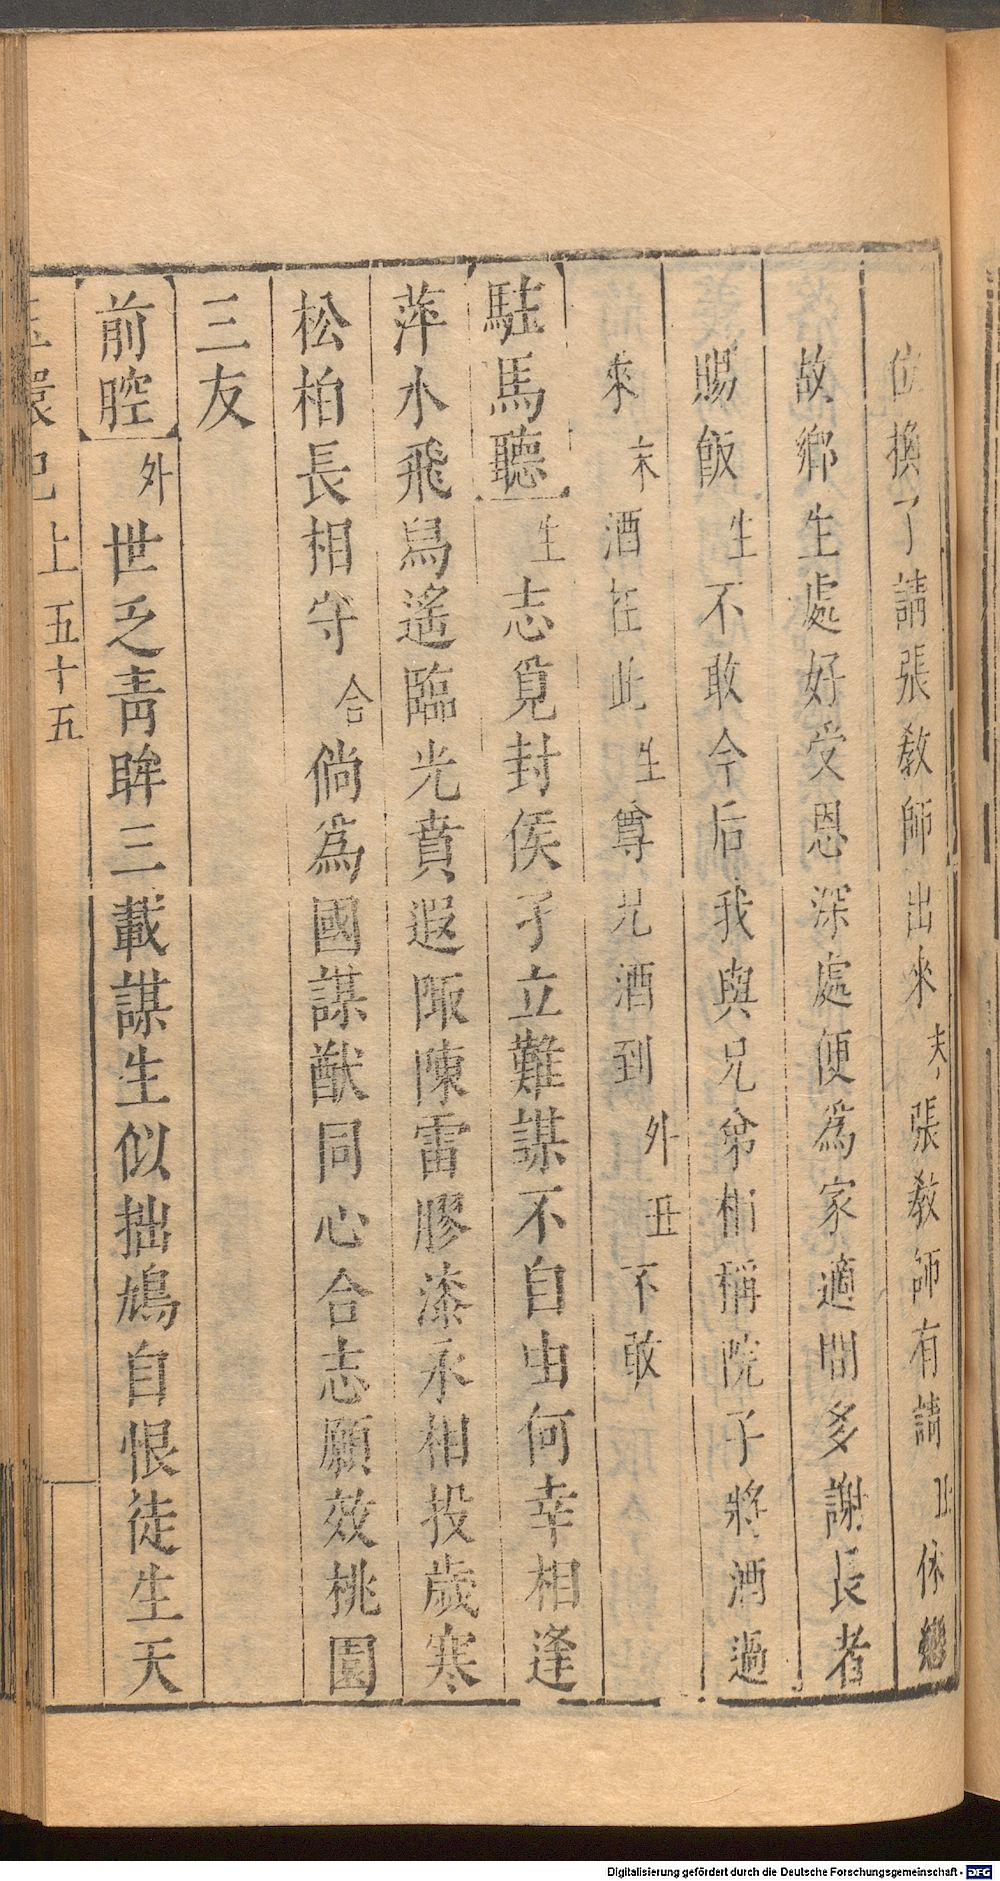 位換了請張教師出來末張教師有請丑休戀
故鄉生處好受恩深處便為家適間多謝長者
賜飯生不敢今后我與兄弟相稱院子將酒過
來末酒在此生尊兄酒到外丑不敢
駐馬聽生志覓封侯孑立難謀不自由何幸相逢
萍水飛舄遙臨光賁遐陬陳雷膠漆永相投歲寒
松柏長相守合倘為國謀猷同心合志願效桃園
三友
前腔外世乏青眸三載謀生似拙鳩自恨徒生天
玉環記上五十五
Digitalisierung gefördert durch die Deutsche Forschungsgemeinschaft - DFG